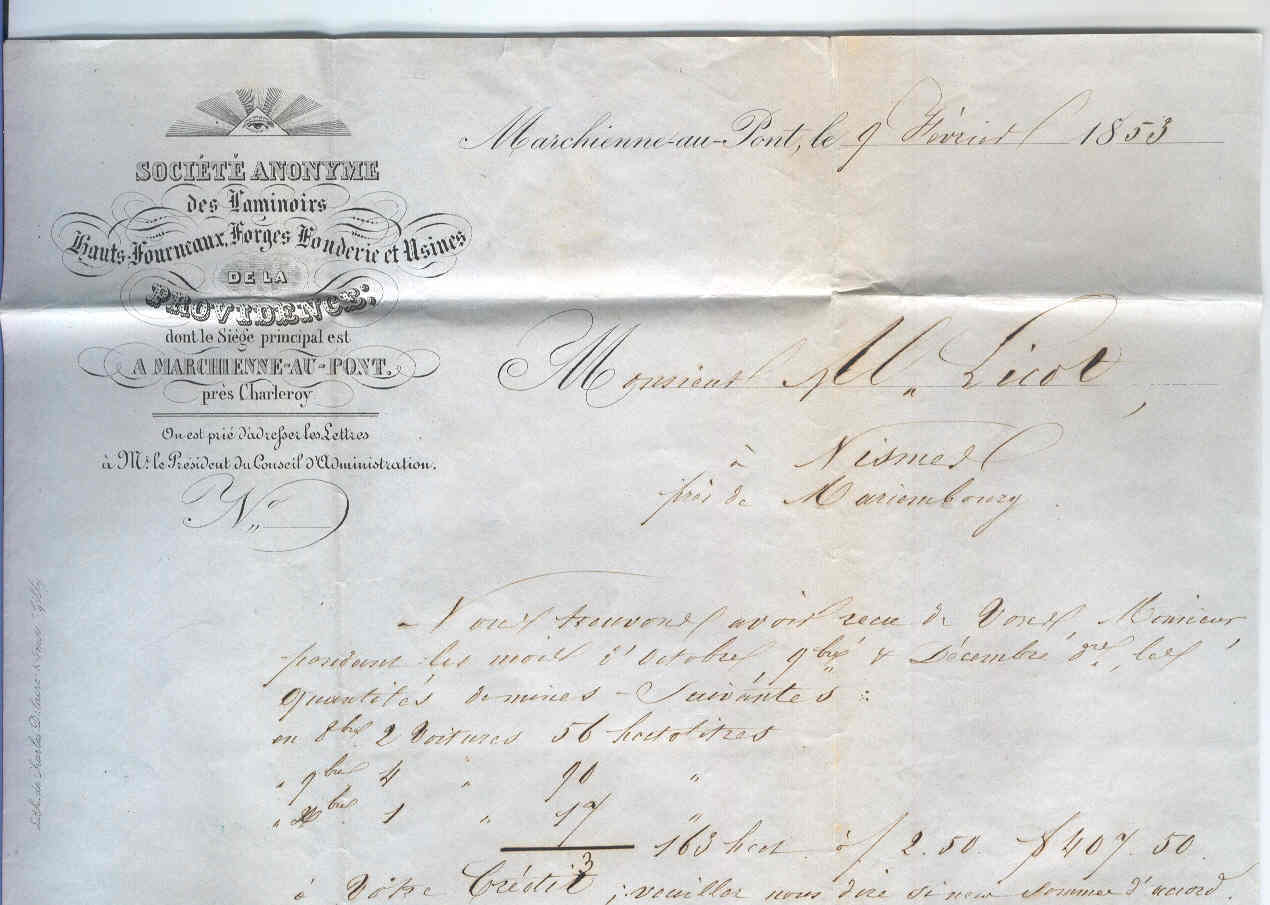 SOCIÉTÉ ANONYME
des Laminoirs
Hauts-Fourneaux, Forges Fonderie et Usines
DE LA
PROVIDENCE,
dont le Siége principal est
A MARCHIENNE-AU-PONT.
près Charleroy
On est prié d'adresser les Lettres
à Mr. le Président du Conseil d'Administration.
No.
Marchienne-au-Pont, le 9 Février 1853
Monsieur Licot,
à Nismes
près de Mariembourg.
Nous trouvons avoir recu de Vous Monsieur
pendant les mois d'Octobre, 9bre & Décembre der, les
quantités de mines Suivantes :
en 8bre 2 Voitures 56 hectolitres
" 9bre 4 " 90 "
" Xbre 1 " 17 "
163 hect. à f 2.50 f 407.50.
3
à Vôtre Crédit ; veuillez nous dire si nous sommes d'accord.
Lith. de Charles